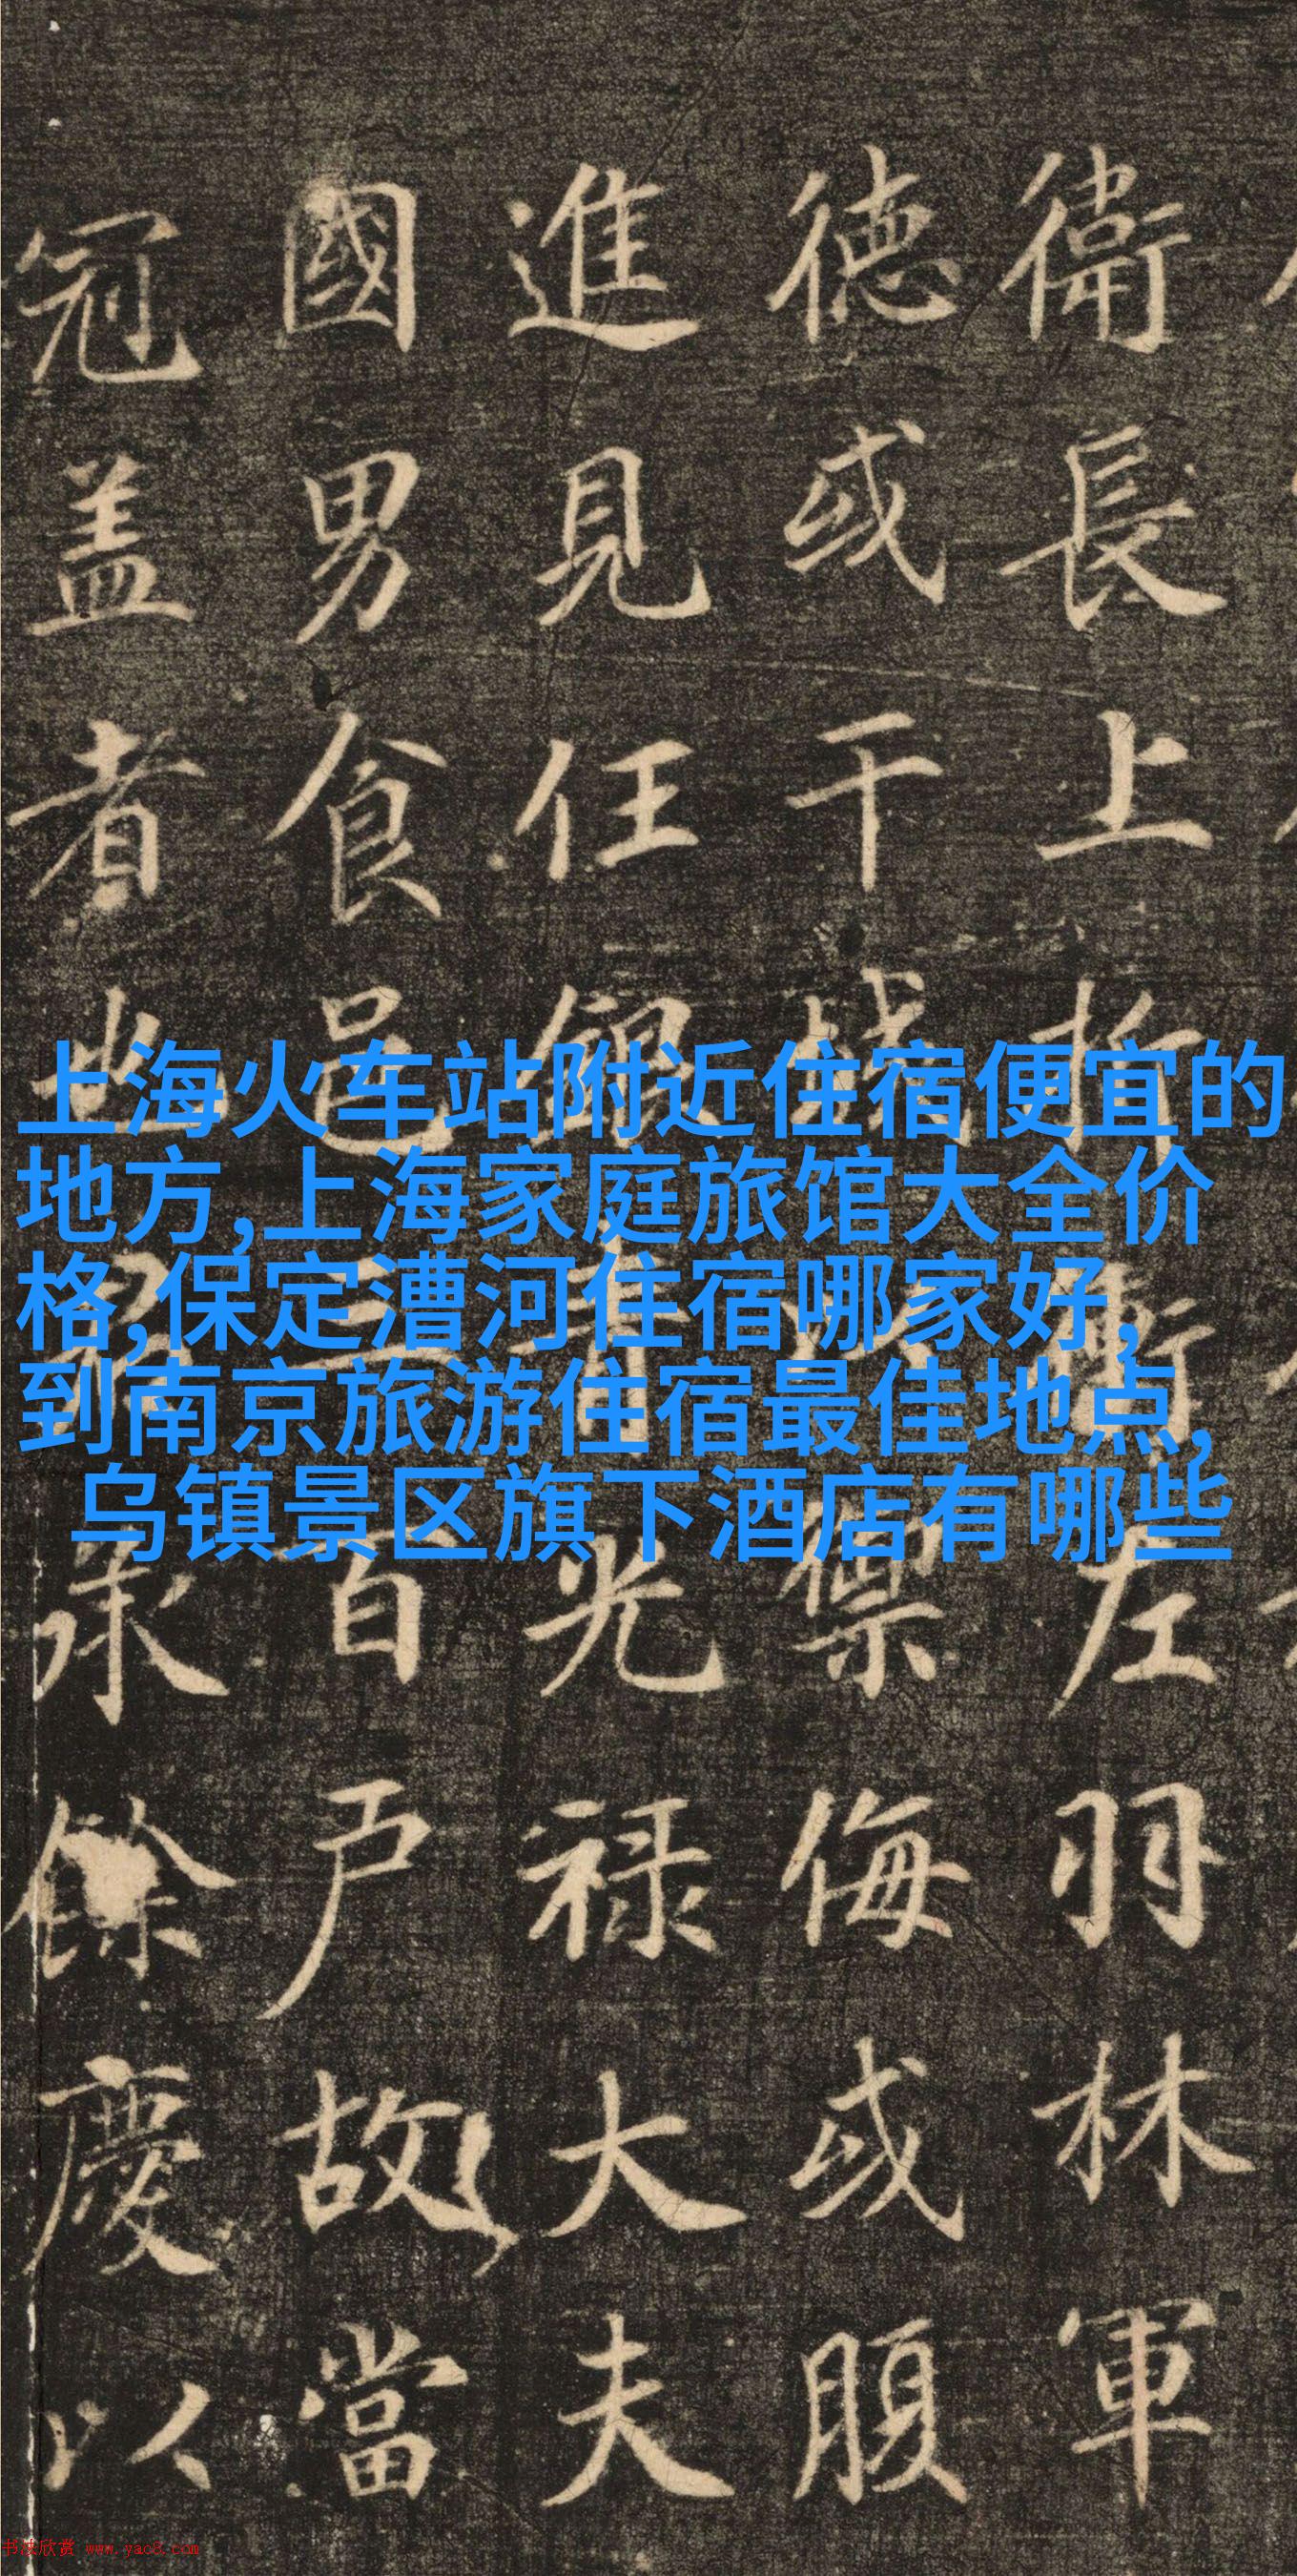 衛長上折衝左羽林軍
德或干城以禦侮或腹
進見任銀青光禄大夫
國男食邑三百户故當
冠盖者也承餘慶以
上海火车站附近住宿便宜的
地方,上海家庭旅馆大全价
格,保定漕河住宿哪家好，
到南京旅游住宿最佳地点,
乌镇景区旗下酒店有哪些
书法欣赏 www.yac8.com